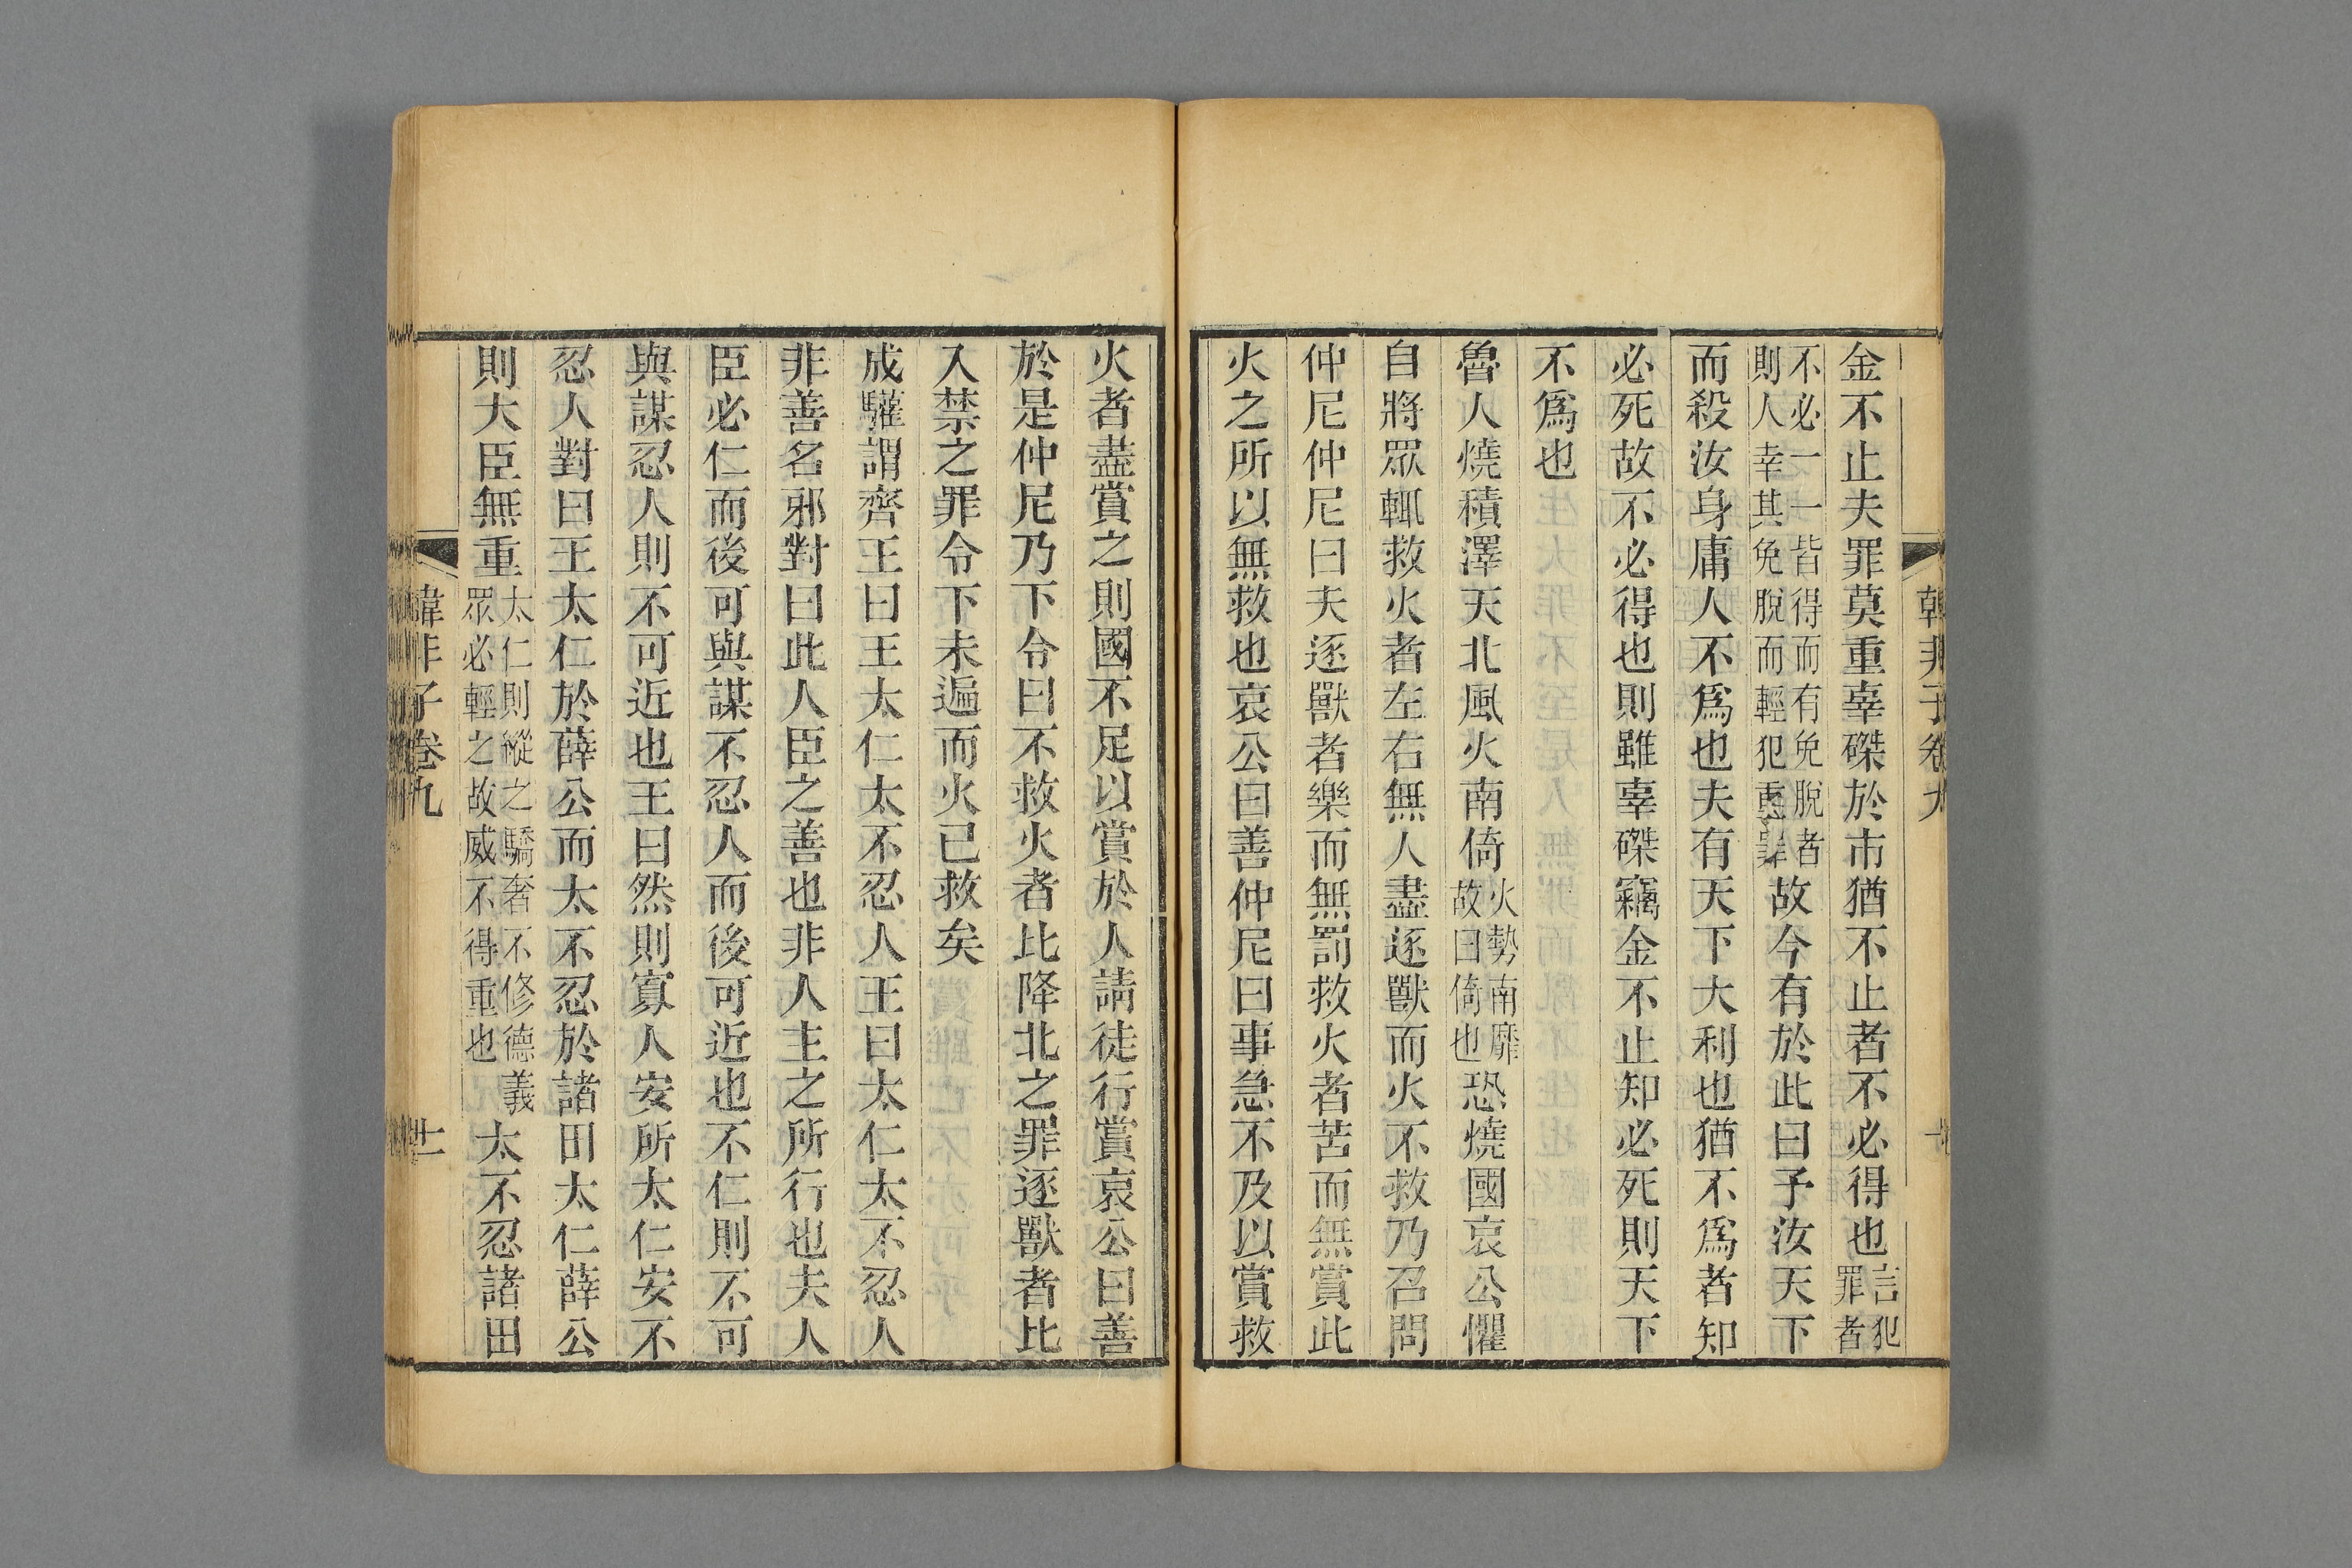 韓非子卷九
金不止夫罪莫重辜磔於市猶不止者不必得也言犯罪者
不必一一皆得而有免脫者則人幸其免脫而輕犯重罪故今有於此曰予汝天下
而殺汝身庸人不爲也夫有天下大利也猶不爲者知
必死故不必得也則雖辜磔竊金不止知必死則天下
不爲也
魯人燒積澤天北風火南倚火勢南靡故曰倚也恐燒國哀公懼
自將眾輒救火者左右無人盡逐獸而火不救乃召問
仲尼仲尼曰夫逐獸者樂而無罰救火者苦而無賞此
火之所以無救也哀公曰善仲尼曰事急不及以賞救
火者盡賞之則國不足以賞於人請徒行賞哀公曰善
於是仲尼乃下令曰不救火者比降北之罪逐獸者比
入禁之罪令下未遍而火已救矣
成驩謂齊王曰王太仁太不忍人王曰太仁太不忍人
非善名邪對曰此人臣之善也非人主之所行也夫人
臣必仁而後可與謀不忍人而後可近也不仁則不可
與謀忍人則不可近也王曰然則寡人安所太仁安不
忍人對曰王太仁於薛公而太不忍於諸田太仁薛公
則大臣無重太仁則縱之驕奢不修德義眾必輕之故威不得重也太不忍諸田
韓非子卷九
十一